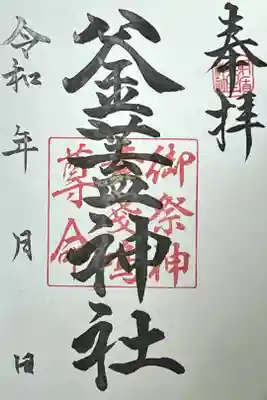 奉拝
釜蓋神社
御祭神
尊命
令和 年 月 日